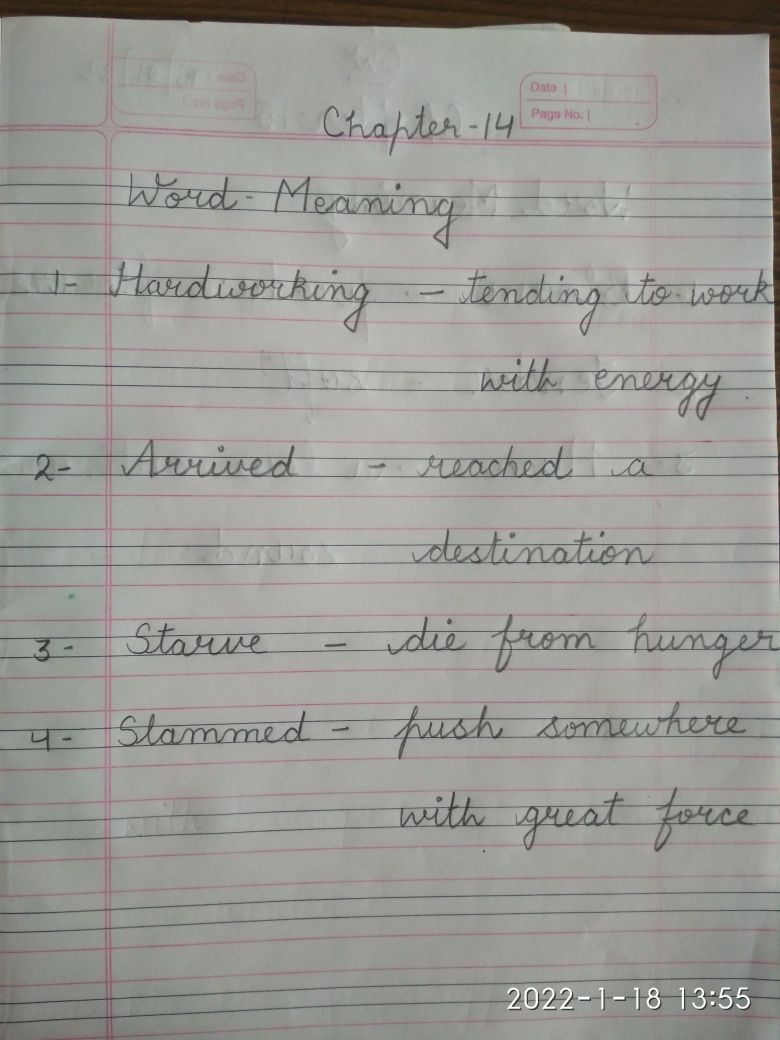 Date |
Page No. |
Chapter-14
Word- Meaning
1- Hardworking - tending to work
with energy
2- Arrived - reached a
destination
3- Starve - die from hunger
4- Slammed - push somewhere
with great force
2022-1-18 13:55